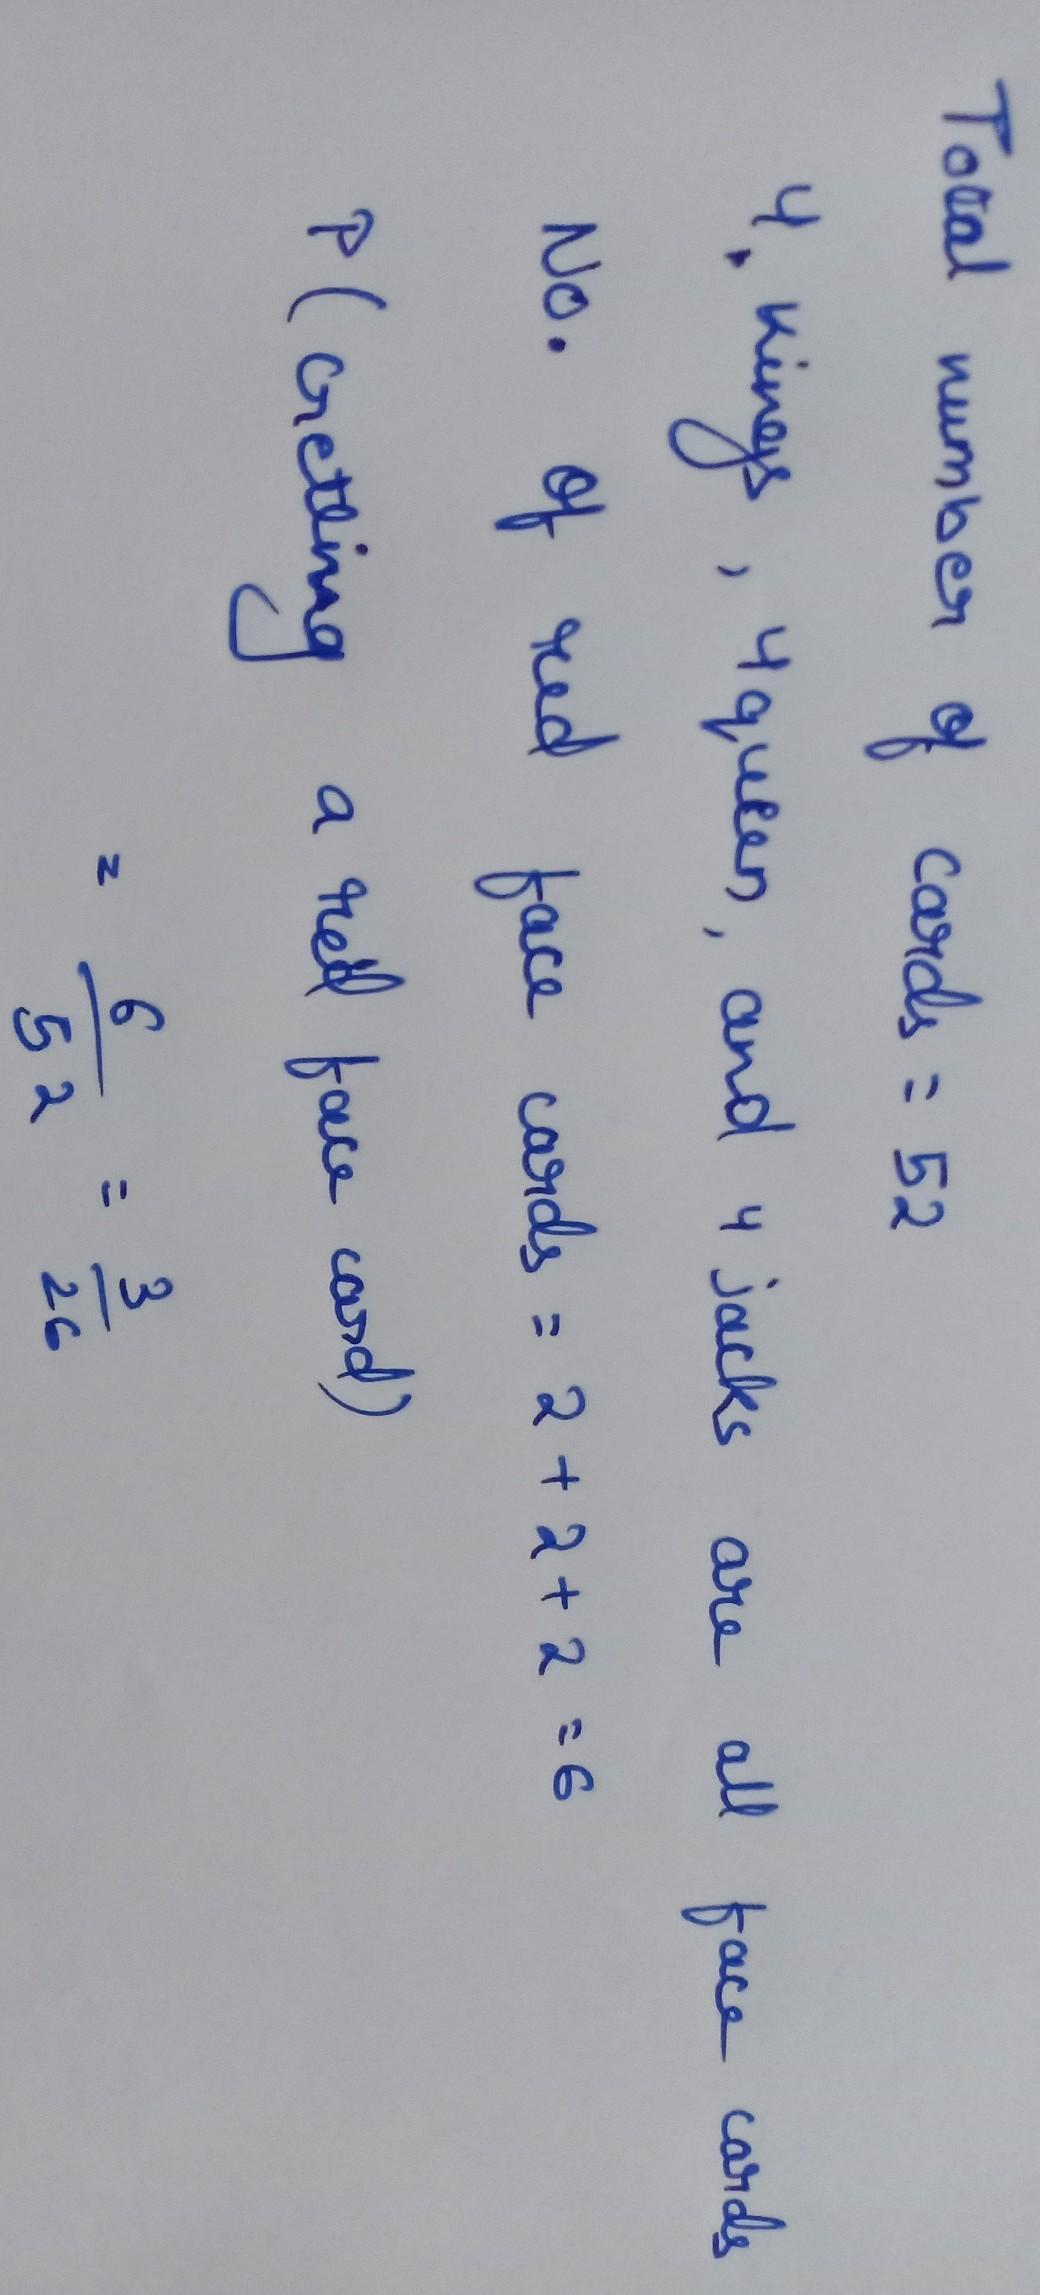 Total number of cards = 52
4. kings, 4 queen, and 4 jacks are all face cards
No. of red face cards = 2 + 2 + 2 = 6
P (Getting a red face card)
= 6/52 = 3/26